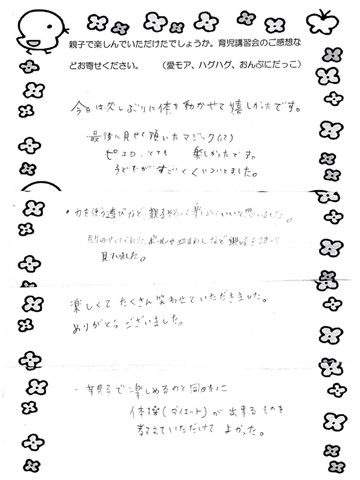 親子で楽しんでいただけたでしょうか。育児講習会のご感想な
どお寄せください。　（愛モア、ハグハグ、おんぶにだっこ）
今日は久しぶりに体を動かせて嬉しかったです。
最後に見せて頂いたマジック(?)
ピコロ、とても 楽しかったです。
子どもがすごくくいついてました。
・力を使う遊びなど親子で 楽しく いいなと思いました。
ボールや など
見ていました。
楽しくて たくさん笑わせていただきました。
ありがとうございました。
・親子で楽しめるのと同時に
体操(ダイエット)が出来るものを
教えていただけて よかった。